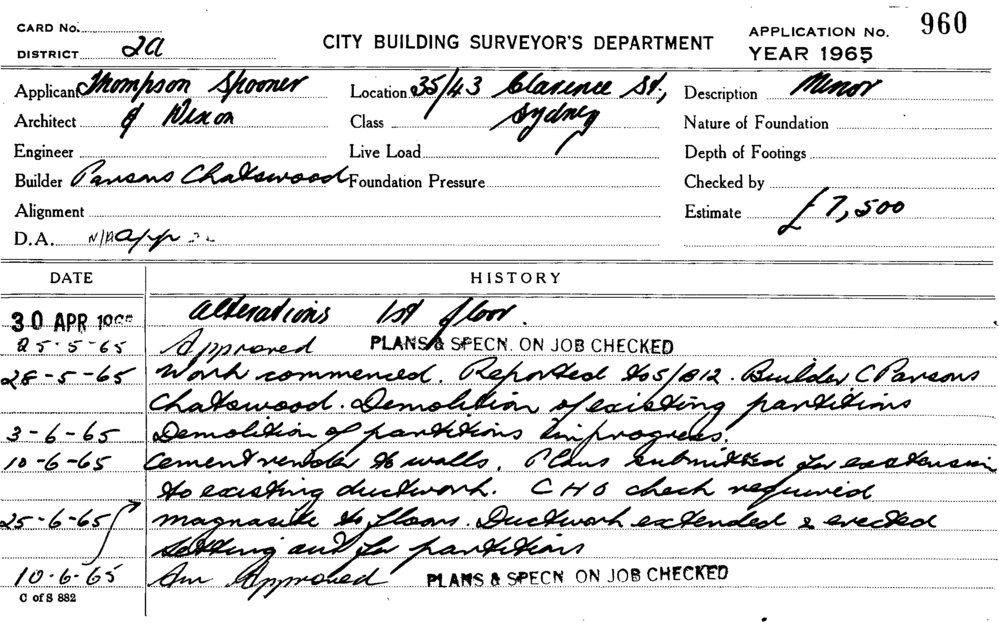 CARD No.
DISTRICT 2a
CITY BUILDING SURVEYOR'S DEPARTMENT
APPLICATION No. 960
YEAR 1965
Applicant Thompson Spooner
Architect & Dixon
Engineer
Builder Parsons Chatswood
Alignment
D.A. N/A app
Location 35/43 Clarence St.,
Class Sydney
Live Load
Foundation Pressure
Description Minor
Nature of Foundation
Depth of Footings
Checked by
Estimate £7,500
DATE HISTORY
30 APR 1965 Alterations 1st floor.
25-5-65 Approved PLANS & SPECN. ON JOB CHECKED
28-5-65 Work commenced. Reported to S/B12. Builder C Parsons
Chatswood. Demolition of existing partitions
3-6-65 Demolition of partitions in progress.
10-6-65 Cement render to walls. Plans submitted for extension
to existing ductwork. CHO check required
25-6-65 magnasite to floors. Ductwork extended & erected
Setting out for partitions
10-6-65 Am Approved PLANS & SPECN ON JOB CHECKED
C of S 882